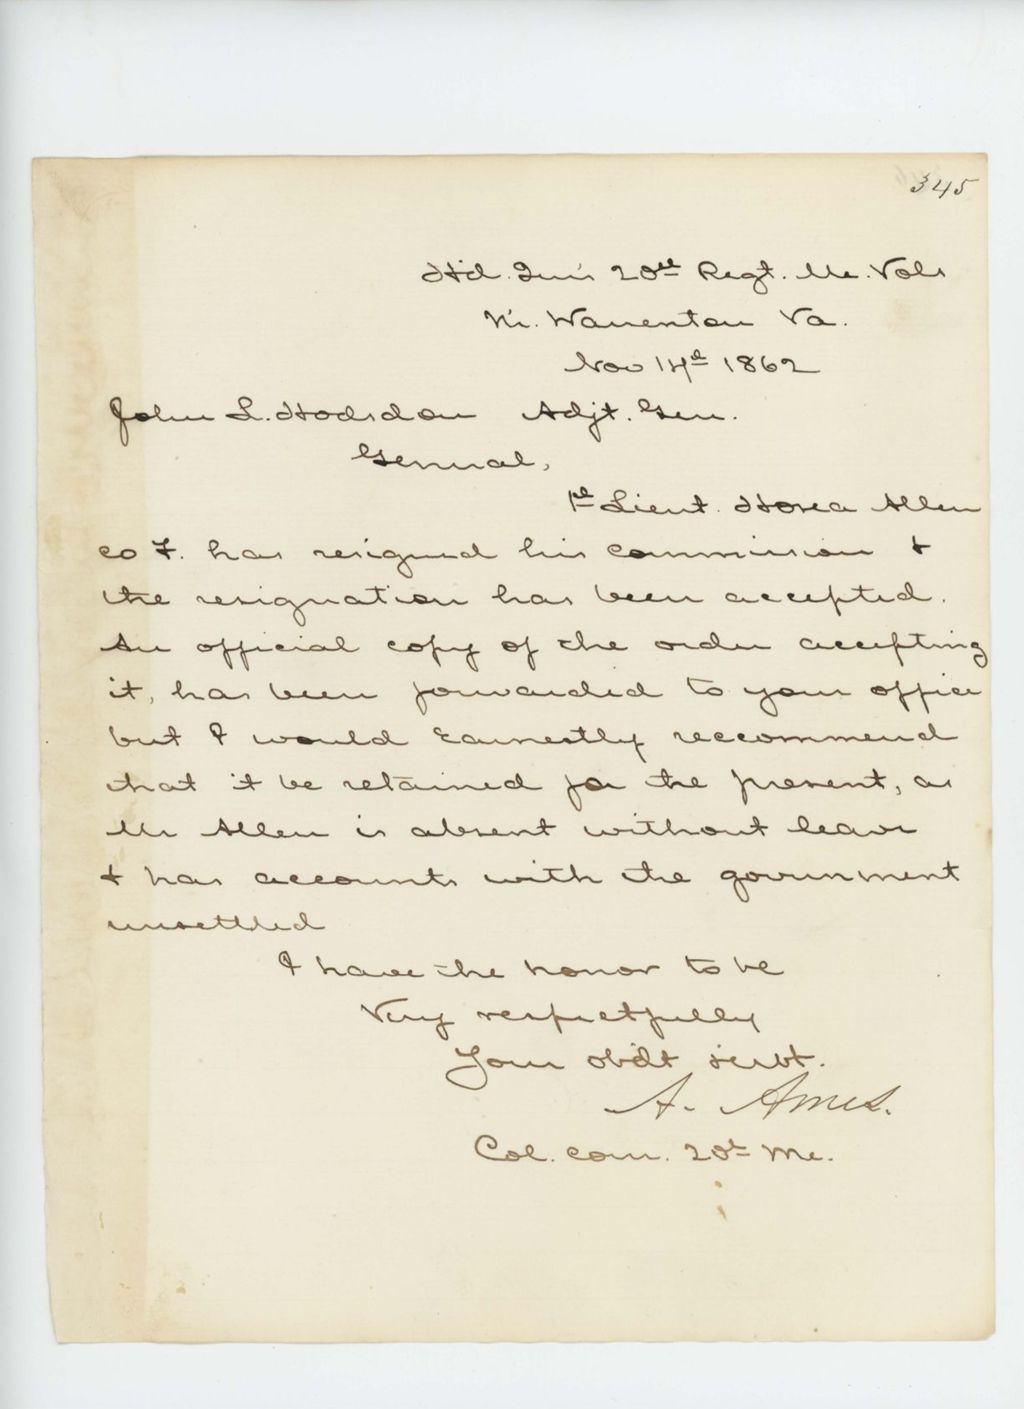 345
Hd. Qurs 20th Regt. Me. Vols
Nr. Warrenton Va.
Nov 14th 1862
John L. Hodsdon Adjt. Gen.
General,
1st Lieut. Hosea Allen
co F. has resigned his commission &
the resignation has been accepted.
An official copy of the order accepting
it, has been forwarded to your office
but I would earnestly reccommend
that it be retained for the present, as
Mr Allen is absent without leave
& has accounts with the government
unsettled
I have the honor to be
Very respectfully
Your obdt servt.
A. Ames.
Col. com. 20th Me.